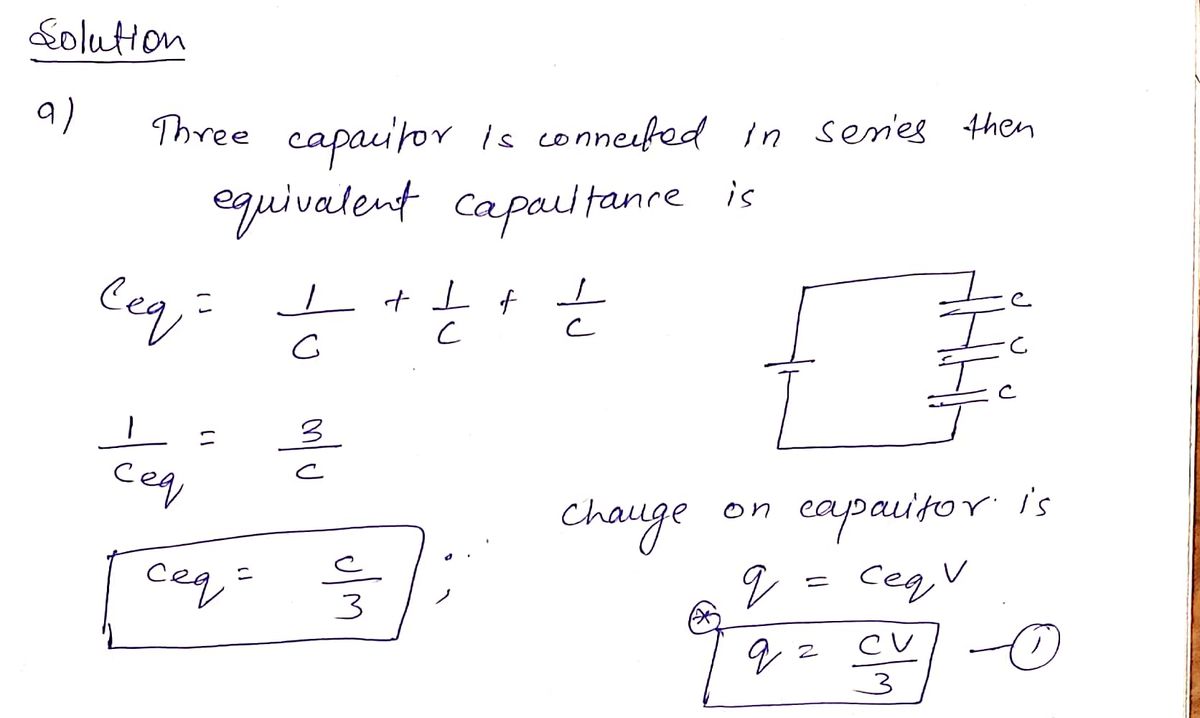 Solution
a) Three capacitor is connected in series then
equivalent capacitance is
Ceq = 1/C + 1/C + 1/C
C
C
C
1/Ceq = 3/C
Ceq = C/3 ;
charge on capacitor is
q = Ceq V
q = CV/3 — ①